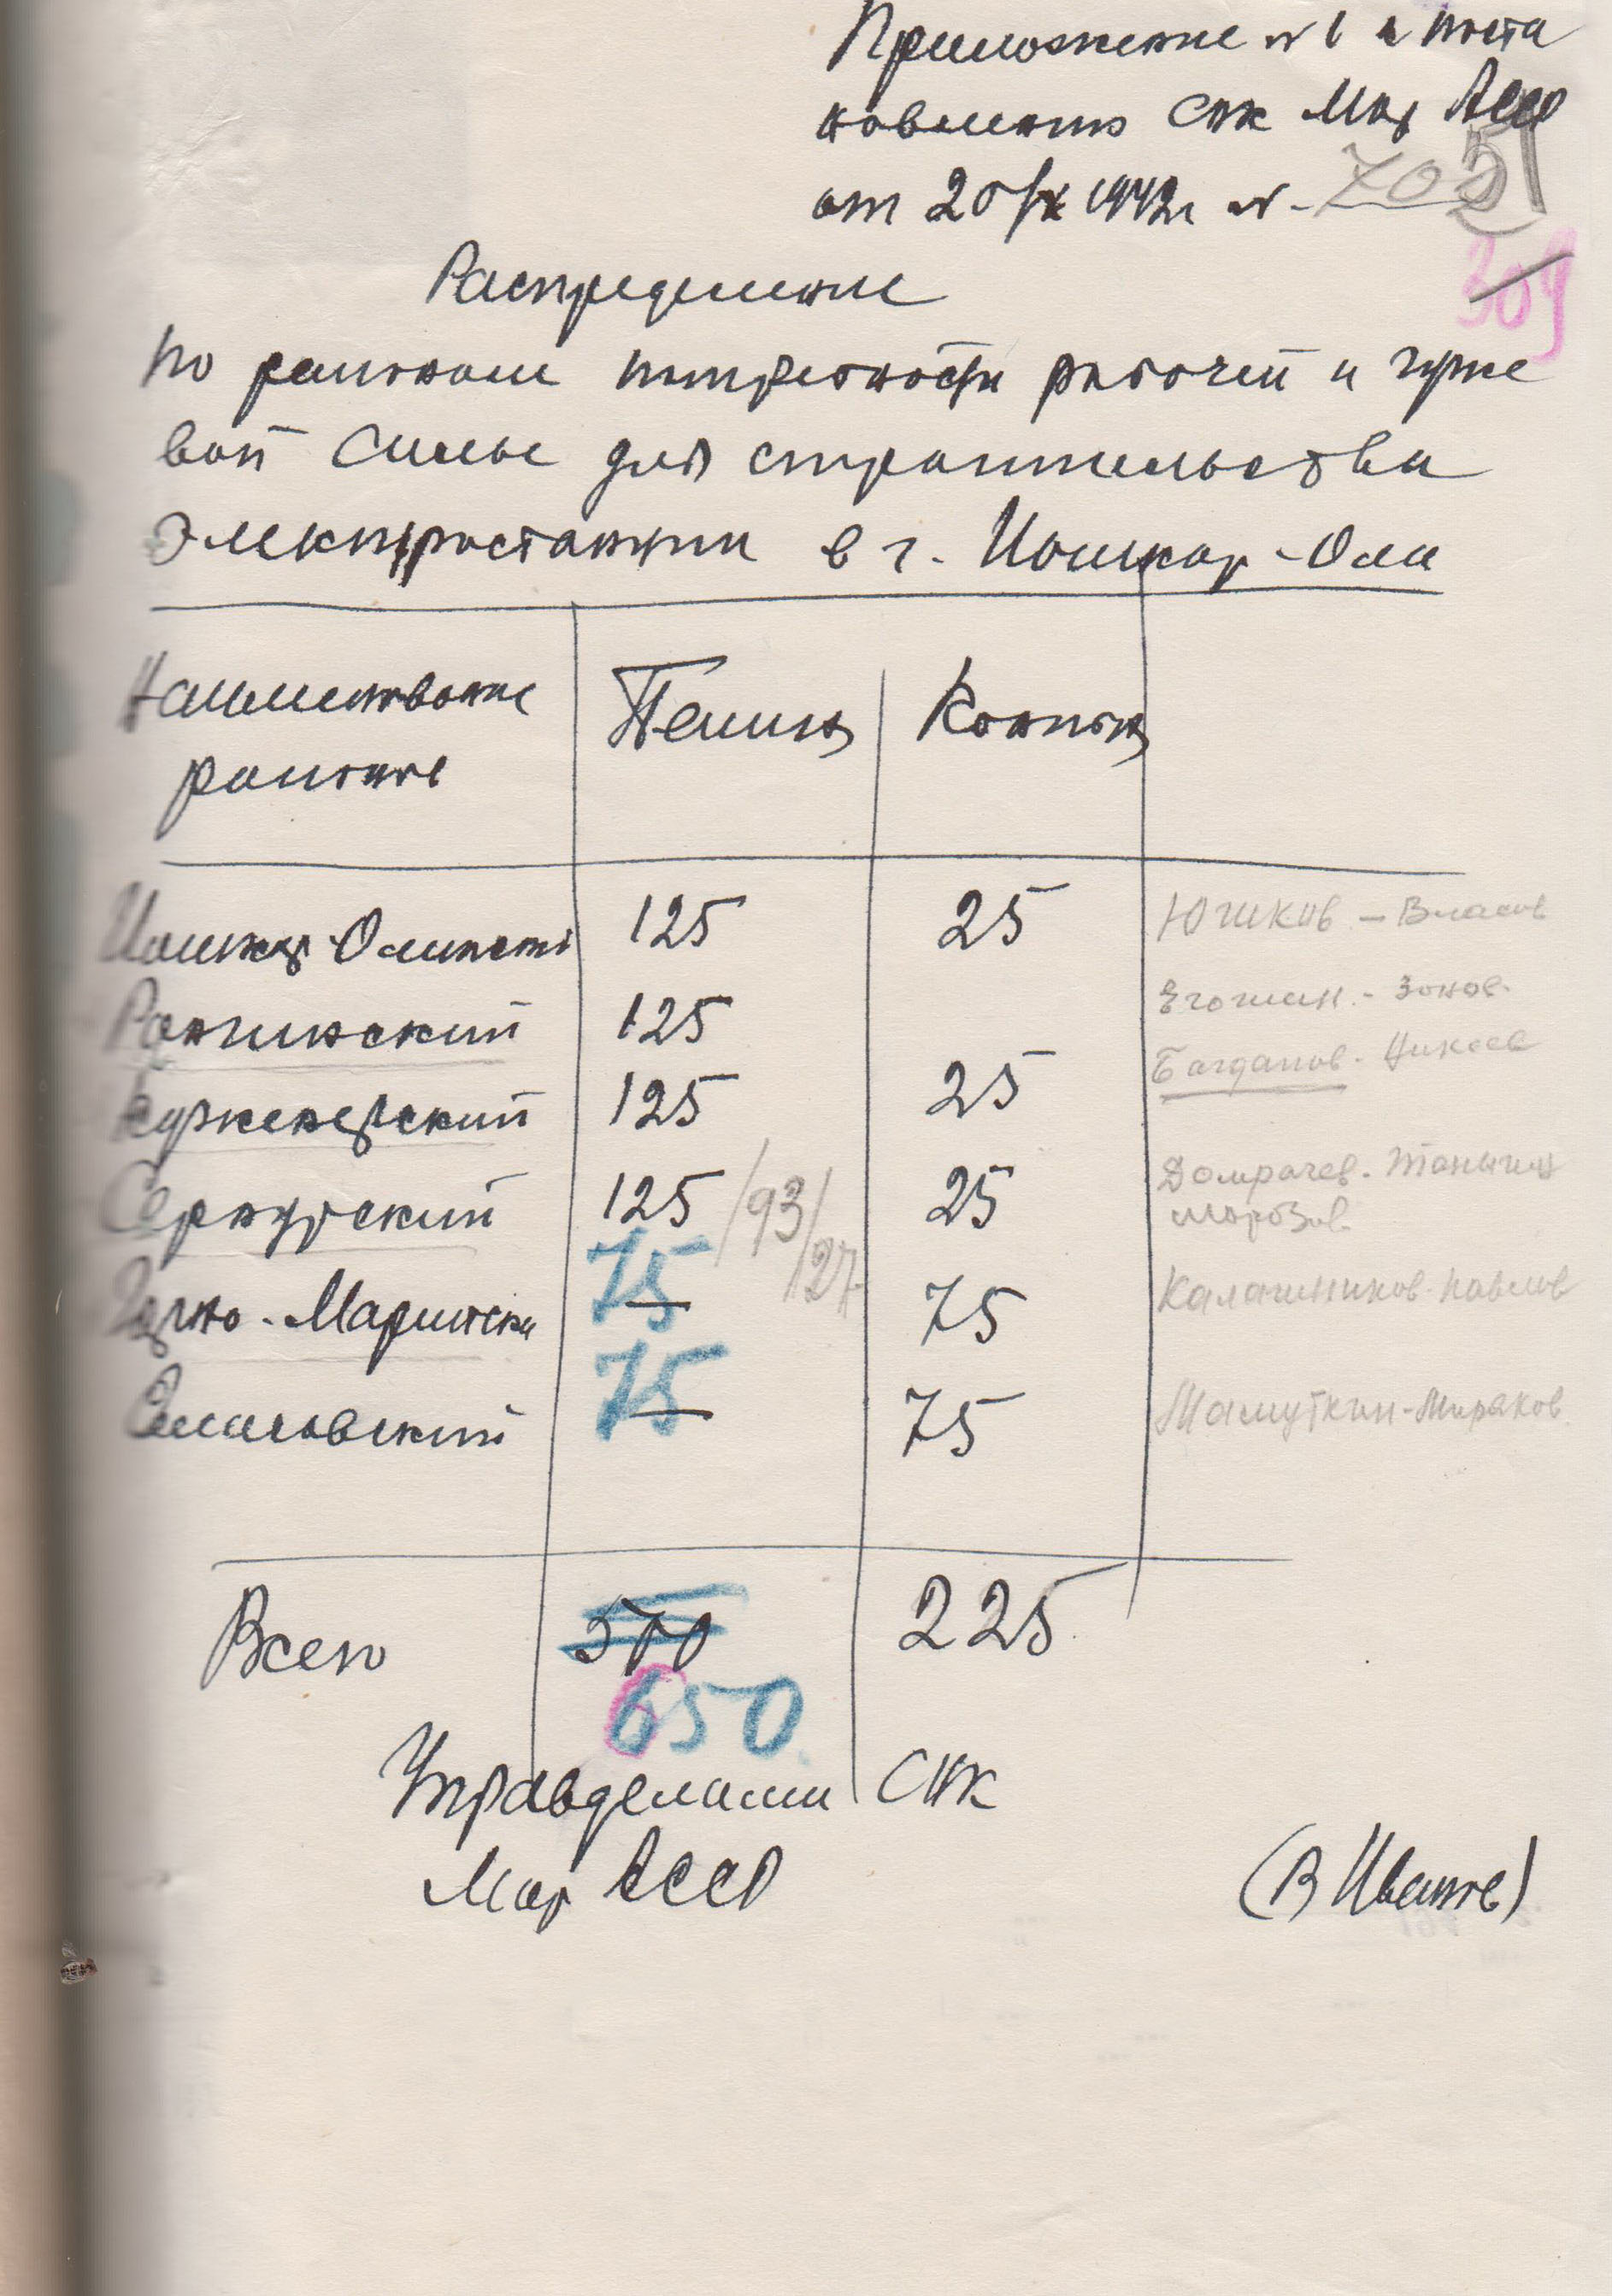 Приложение № 1 к поста
новлению СНК Мар АССР
от 20/IX 1942г № 705
51
309
Распределение
по районам потребности рабочей и гуже
вой силы для строительства
электростанции в г. Йошкар-Ола
Наименование районов Пеших Конных
Йошкар-Олинский 125 25 Югиков - Власов
Ронгинский 125 Егошин. - Зонов.
Куженерский 125 25 Багданов -
Сернурский 125 /93/27 25 Домрачев. Тоныгин
Морозов.
Горно-Марийский 75 — 75 Калашников - Павлов
Еласовский 75 — 75 Мамуткин - Миряков
Всего 500 225
650
Управделами СНК
Мар АССР (В Иванов)